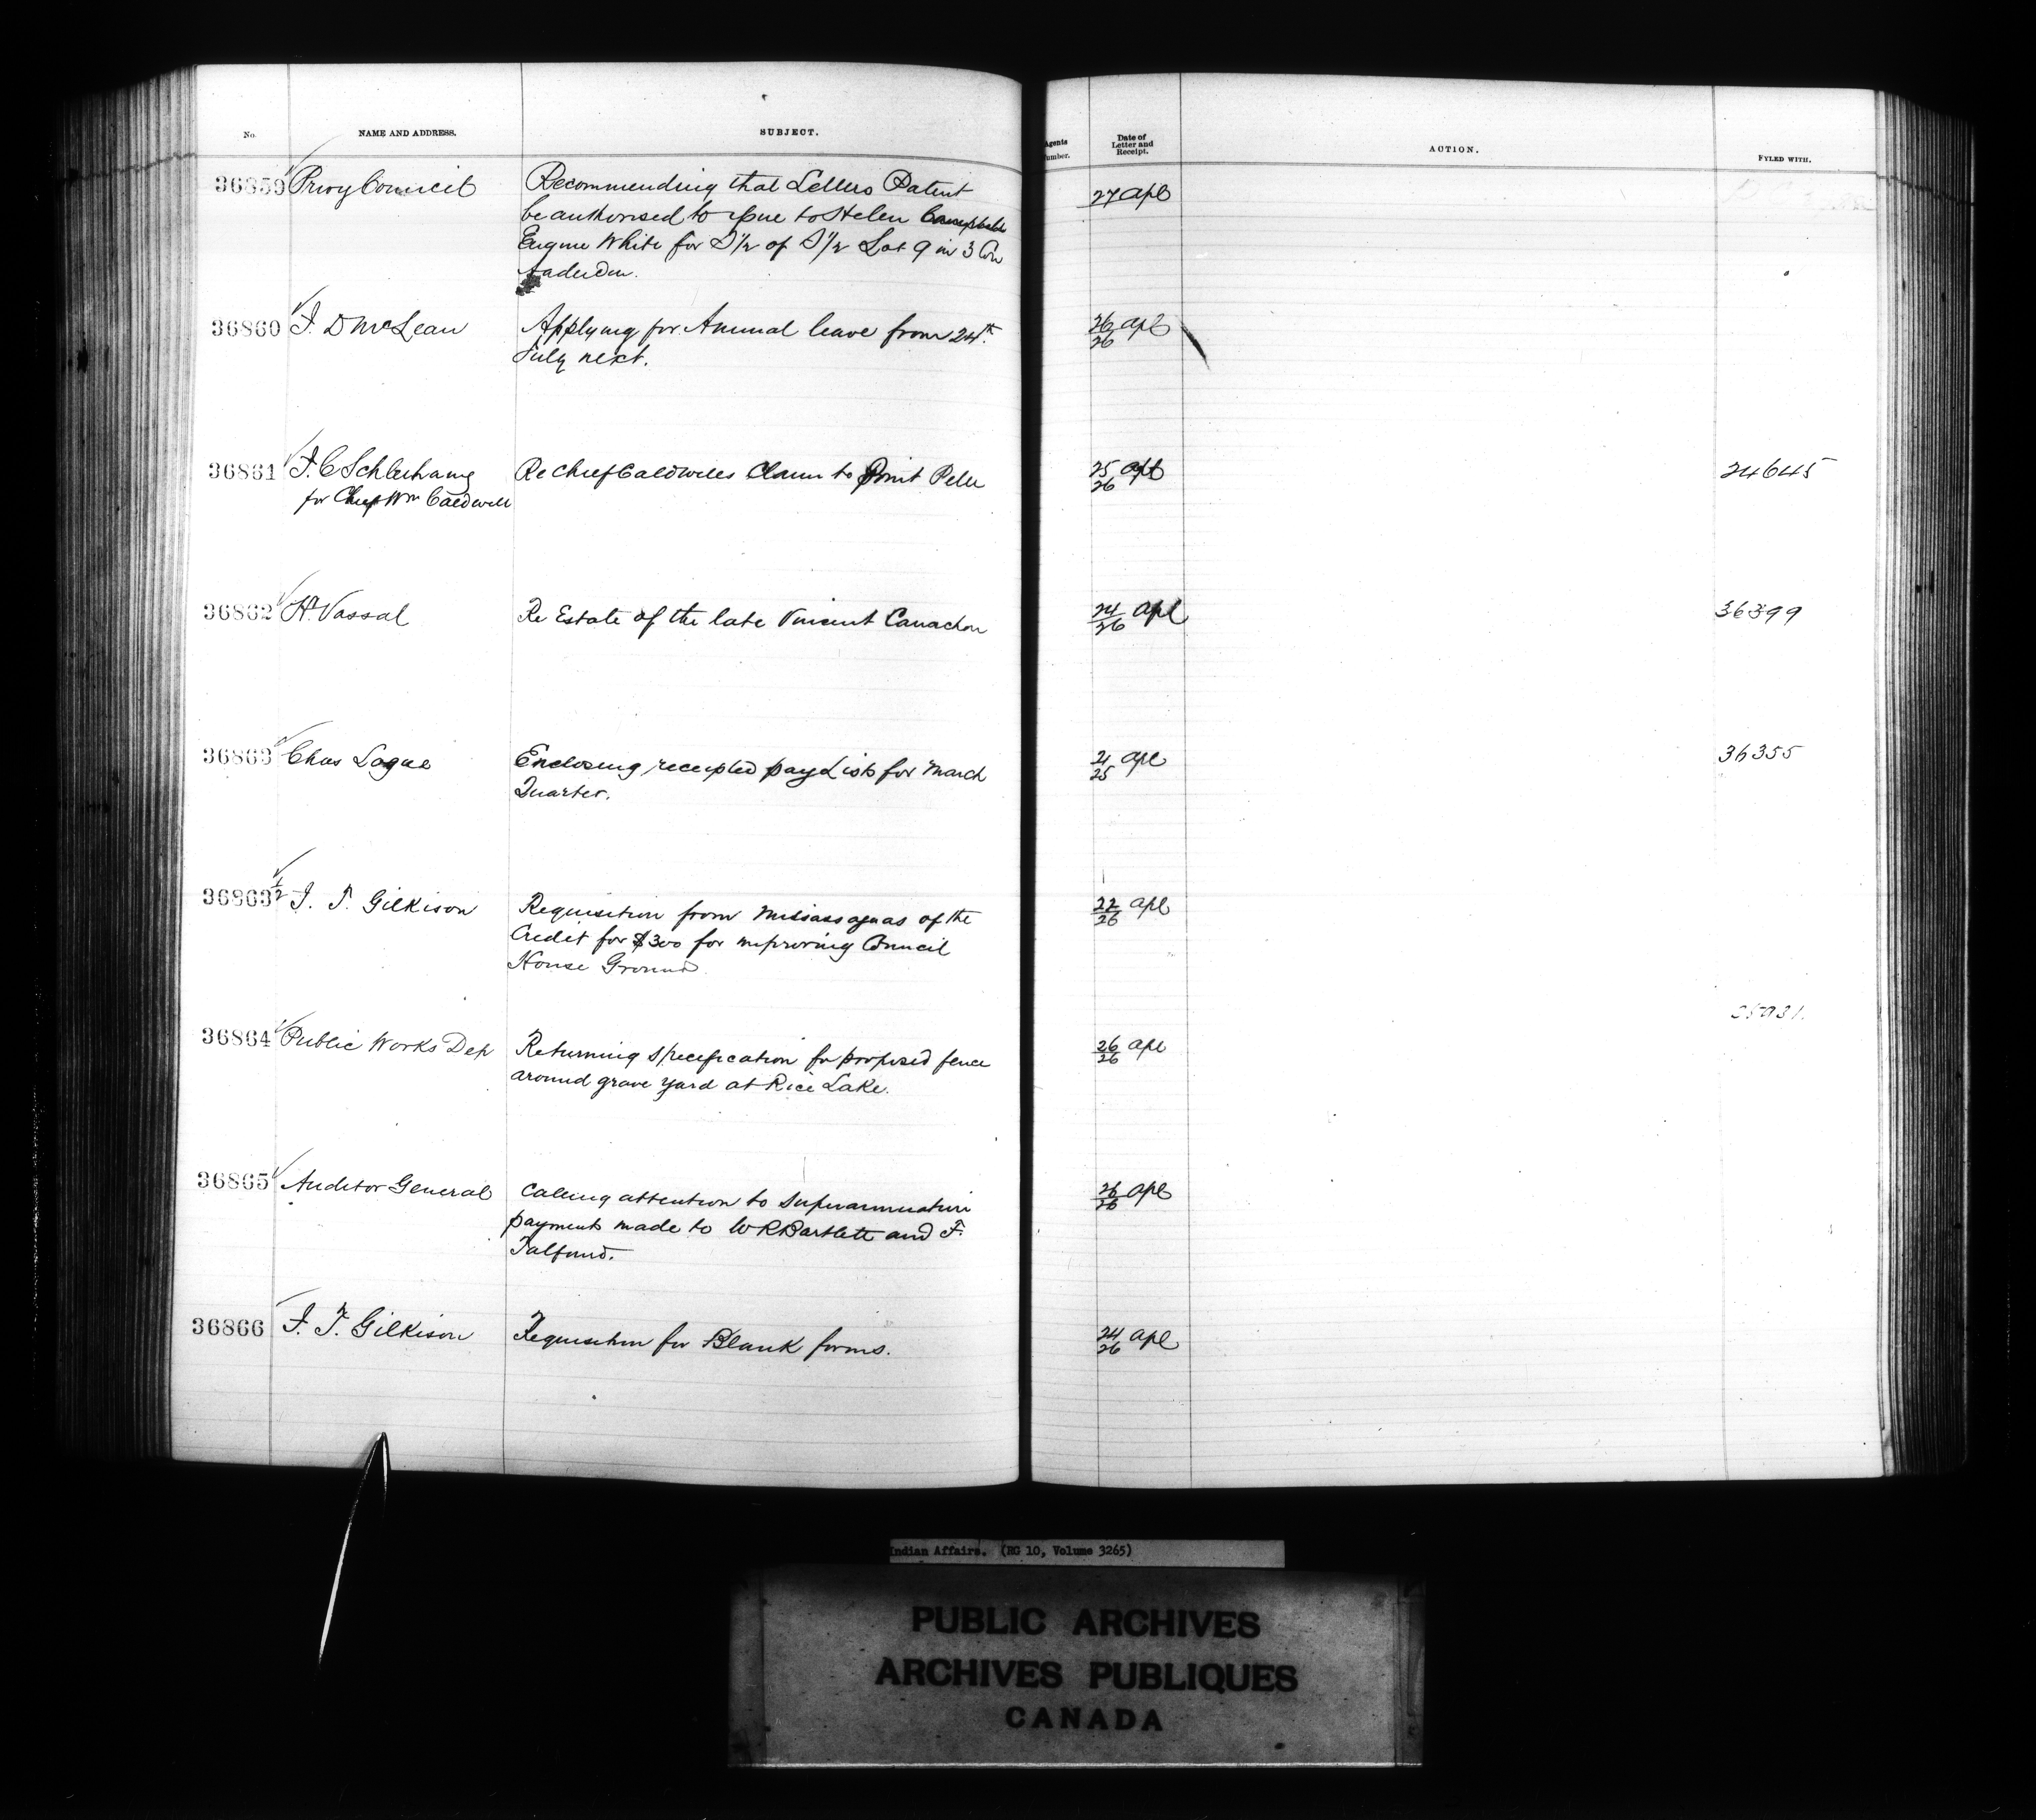 No. NAME AND ADDRESS. SUBJECT. Agents Number. Date of Letter and Receipt. ACTION. FYLED WITH.
36859 Privy Council Recommending that Letters Patent 27 Apl
be authorised to issue to Helen
Eugine White for S 1/2 of S 1/2 Lot 9 in 3 Con
Anderdon.
36860 J. D McLean Applying for Annual leave from 24th 26/26 Apl
July next.
36861 F. C Re Chief Caldwells Claim to Point Pelee 25/26 Apl 24645
for Chief Wm Caldwell
36862 H. Vassal Re Estate of the late Vincent 24/26 Apl 36399
36863 Chas Logue Enclosing receipted pay Lists for March 21/25 Apl 36355
Quarter.
36863 1/2 J. T. Gilkison Requisition from Missassaguas of the 22/26 Apl
Credit for $300 for improving Council
House Ground
36864 Public Works Dep Returning specification for proposed fence 26/26 Apl
around grave yard at Rice Lake.
36865 Auditor General Calling attention to Superannuation 26/26 Apl
payments made to W R Bartlett and F.
Talfourd.
36866 J. T. Gilkison Requisition for Blank forms. 24/26 Apl
Indian Affairs. (RG 10, Volume 3265)
PUBLIC ARCHIVES
ARCHIVES PUBLIQUES
CANADA